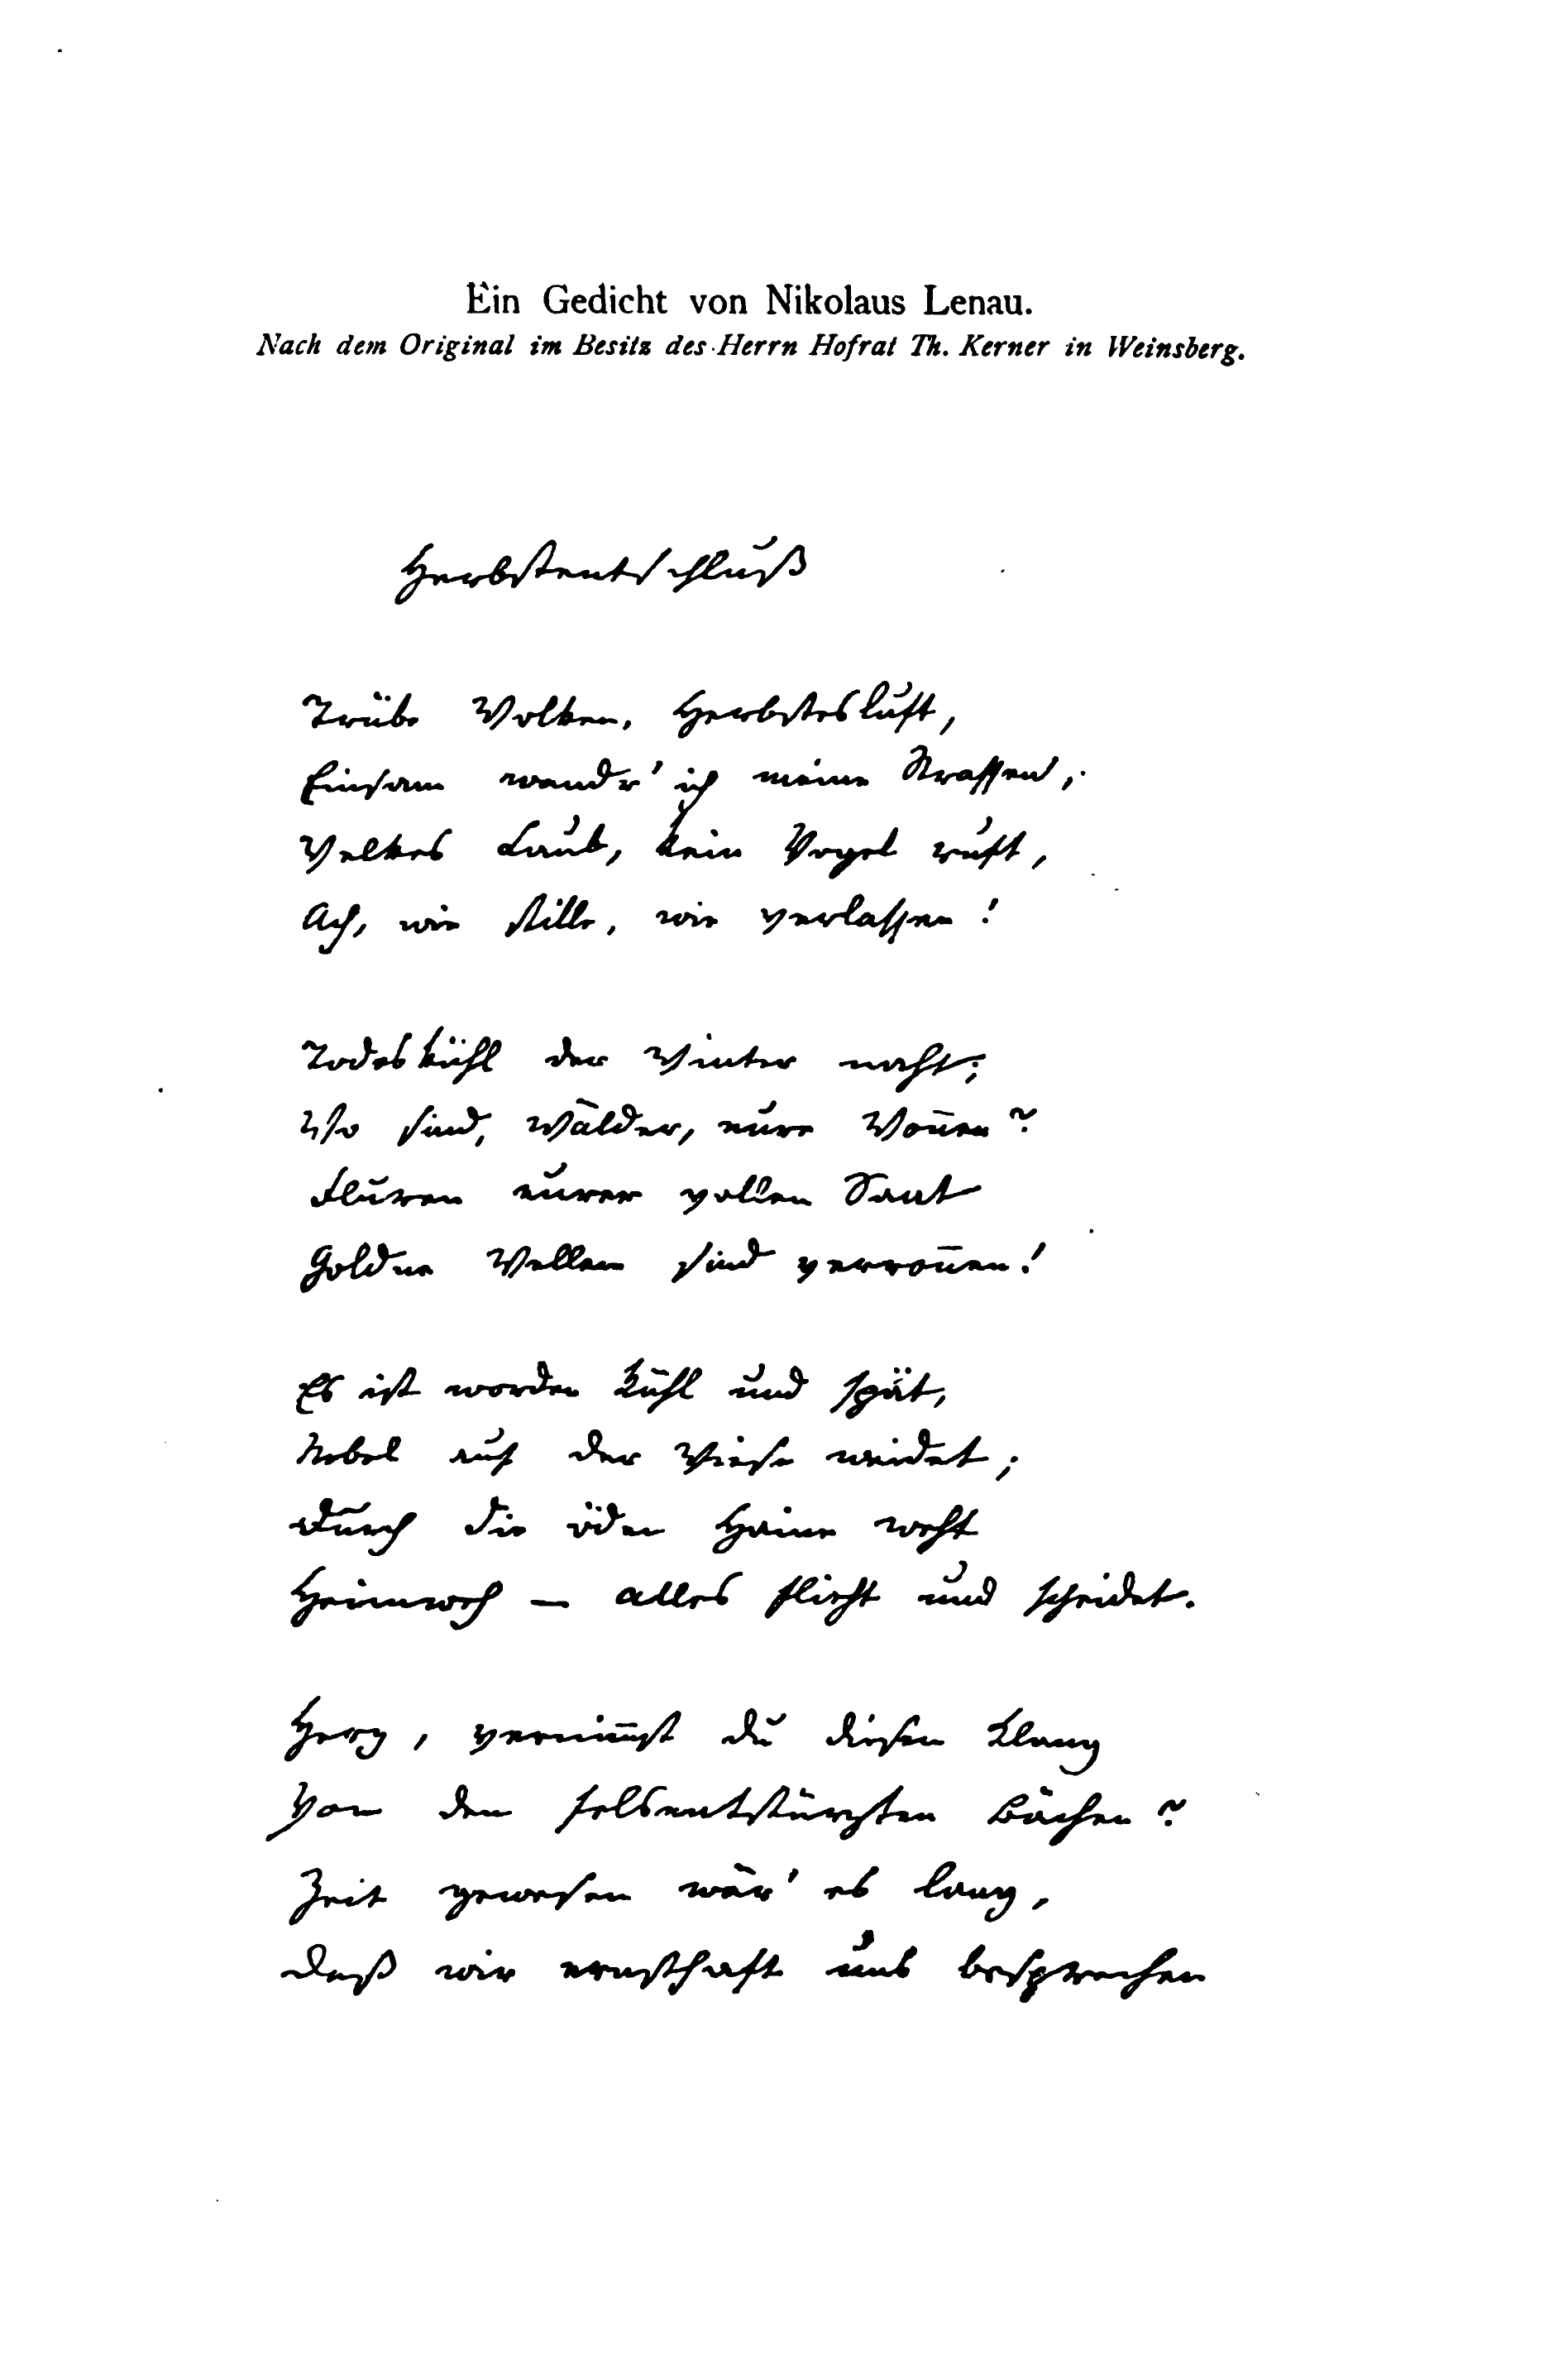 Ein Gedicht von Nikolaus Lenau.
Nach dem Original im Besitz des Herrn Hofrat Th. Kerner in Weinsberg.
Herbstentschluß
Trübe Wolken, Herbstesluft,
Einsam wandr' ich meine Strassen,
Welkes Laub, kein Vogel ruft,
Ach, wie stille, wie verlassen!
Todeskühl der Winter naht;
Wo sind, Wälder, eure Won̄en?
Fluren eurer vollen Saat
Goldne Wellen sind verron̄en!
Es ist worden kühl und spät,
Nebel auf der Wiese weidet;
Durch die öden Haine weht
Heimweh — alles flieht und scheidet.
Herz, vernim̄st du diesen Klang
Von den felsentstürzten Bächen?
Zeit gewesen wär' es lang,
Daß wir ernsthaft uns besprechen